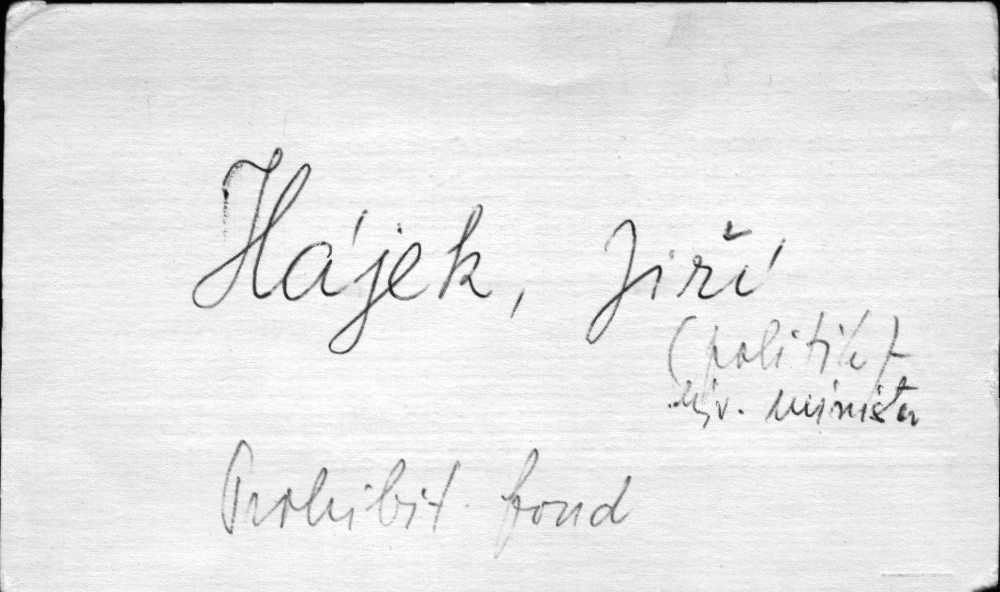 Hájek, Jiří
(politik)
býv. ministr
Prohibit. fond